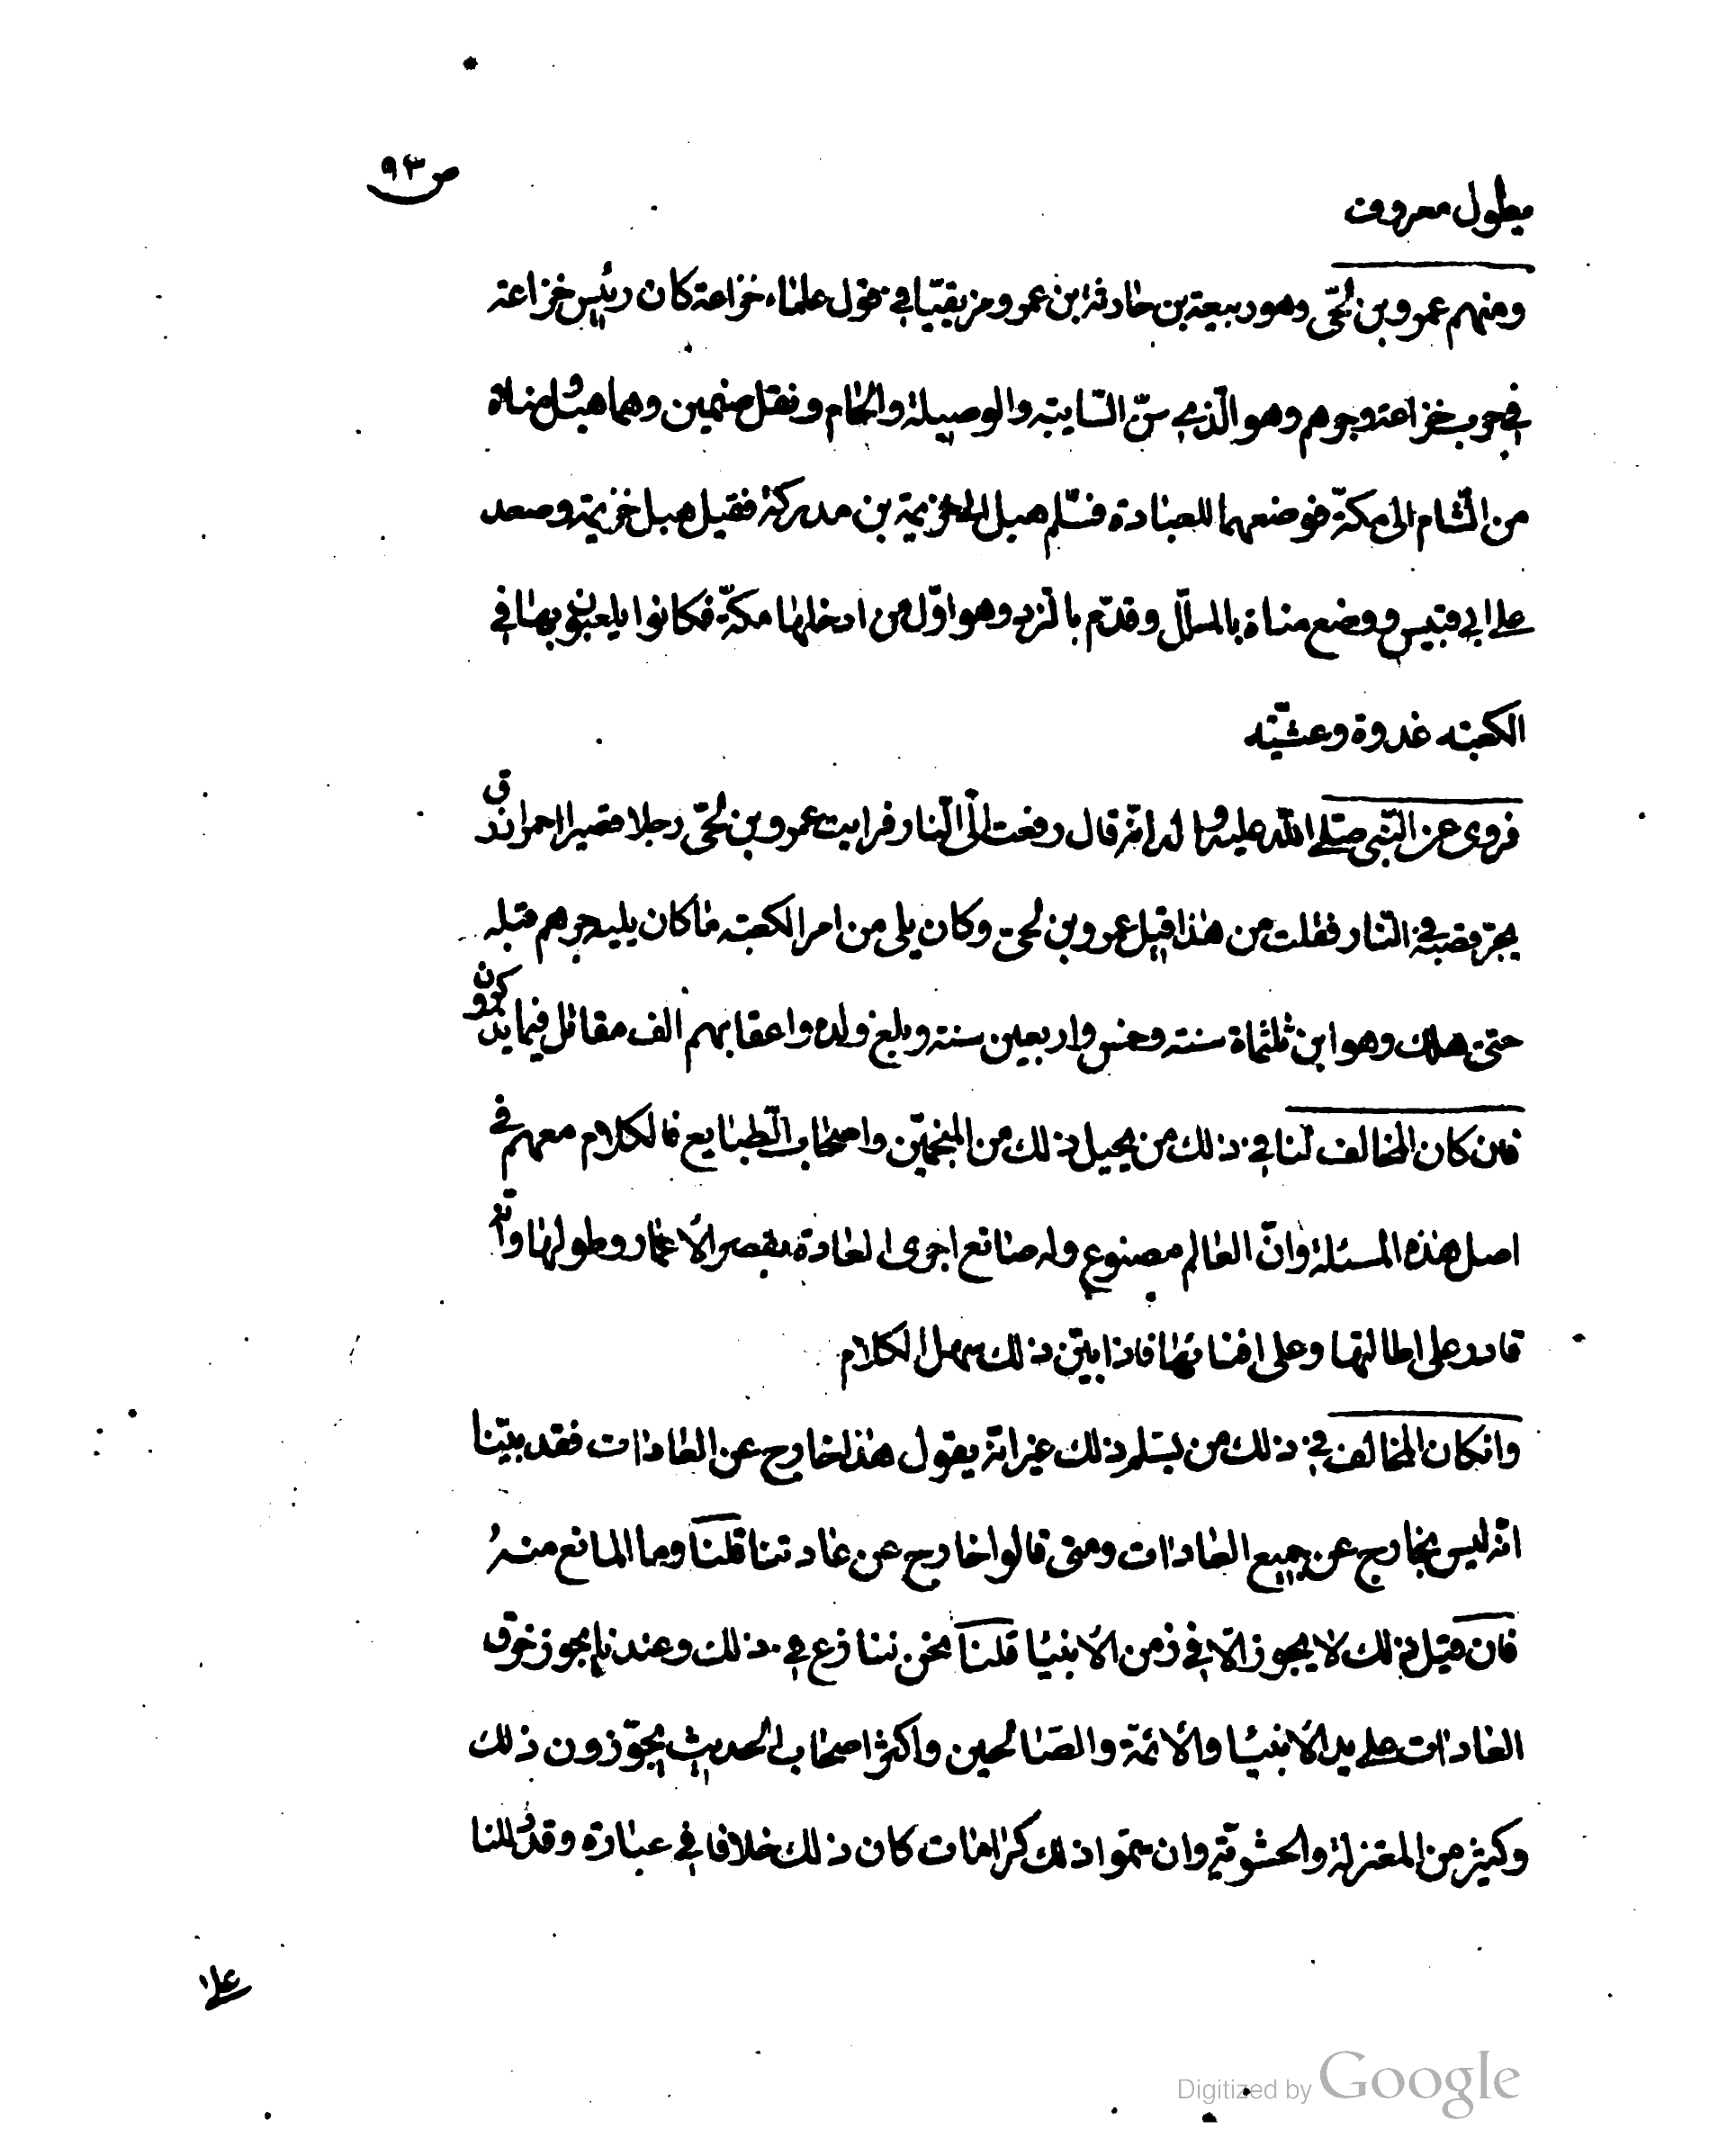 ص ٩٣
يطول معروف
ومنهم عمرو بن لحّى وهو ربيعة بن حارثة ابن عمرو مزيقيّا في قول علماء خزاعة كان رئيس خزاعة
في حرب خزاعة وجرهم وهو الّذي سنّ السّايبة والوصيلة والحام ونقل صنمين وهما هبل ومناة
من الشّام الى مكّة فوضعهما للعبادة فسّلم هبل الى خزيمة بن مدركة فقيل هبل خزيمة وصعد
على ابي قبيس ووضع مناة بالمسلّل وقدّم بالنّرد وهو اوّل من ادخلها مكّة فكانوا يلعبون بها في
الكعبة غدوة وعشيّة
فروى عن النّبى صلّى الله عليه وآله انّه قال رفعت الىّ النّار فرايت عمرو بن لحّى رجلا قصيرا احمر ازرق
يجرّ قصبه في النّار فقلت من هذا قيل عمرو بن لحى وكان يلى من امر الكعبة ما كان يليه جرهم قبله
حتى هلك وهو ابن ثلثماة سنة وخمس واربعين سنة وبلغ ولده واعقابهم الف مقاتل فيما يذكرون
فمن كان المخالف لنا في ذلك من يحيل ذلك من المنجّمين واصحاب الطّبايع فالكلام معهم في
اصل هذه المسئلة وانّ العالم مصنوع وله صانع اجرى العادة بقصر الأعمار وطولها وانّه
قادر على اطالتها وعلى افنائها فاذا بيّن ذلك سهل الكلام
وانكان المخالف في ذلك من يسّلم ذلك غير انّه يقول هذا خارج عن العادات فقد بيّنا
انّه ليس بخارج عن جميع العادات ومتى قالوا خارج عن عادتنا قلنا وما المانع منهُ
فان قيل ذلك لا يجوز الّا في زمن الأنبيا قلنا نحن ننازع في ذلك وعندنا يجوز خرق
العادات على يد الأنبيا والأئمّة والصّالحين واكثر اصحاب الحديث يجوّزون ذلك
وكثير من المعتزلة والحشويّة وان سمّوا ذلك كرامات كان ذلك خلافا في عبارة وقد دللنا
على
Digitized by Google